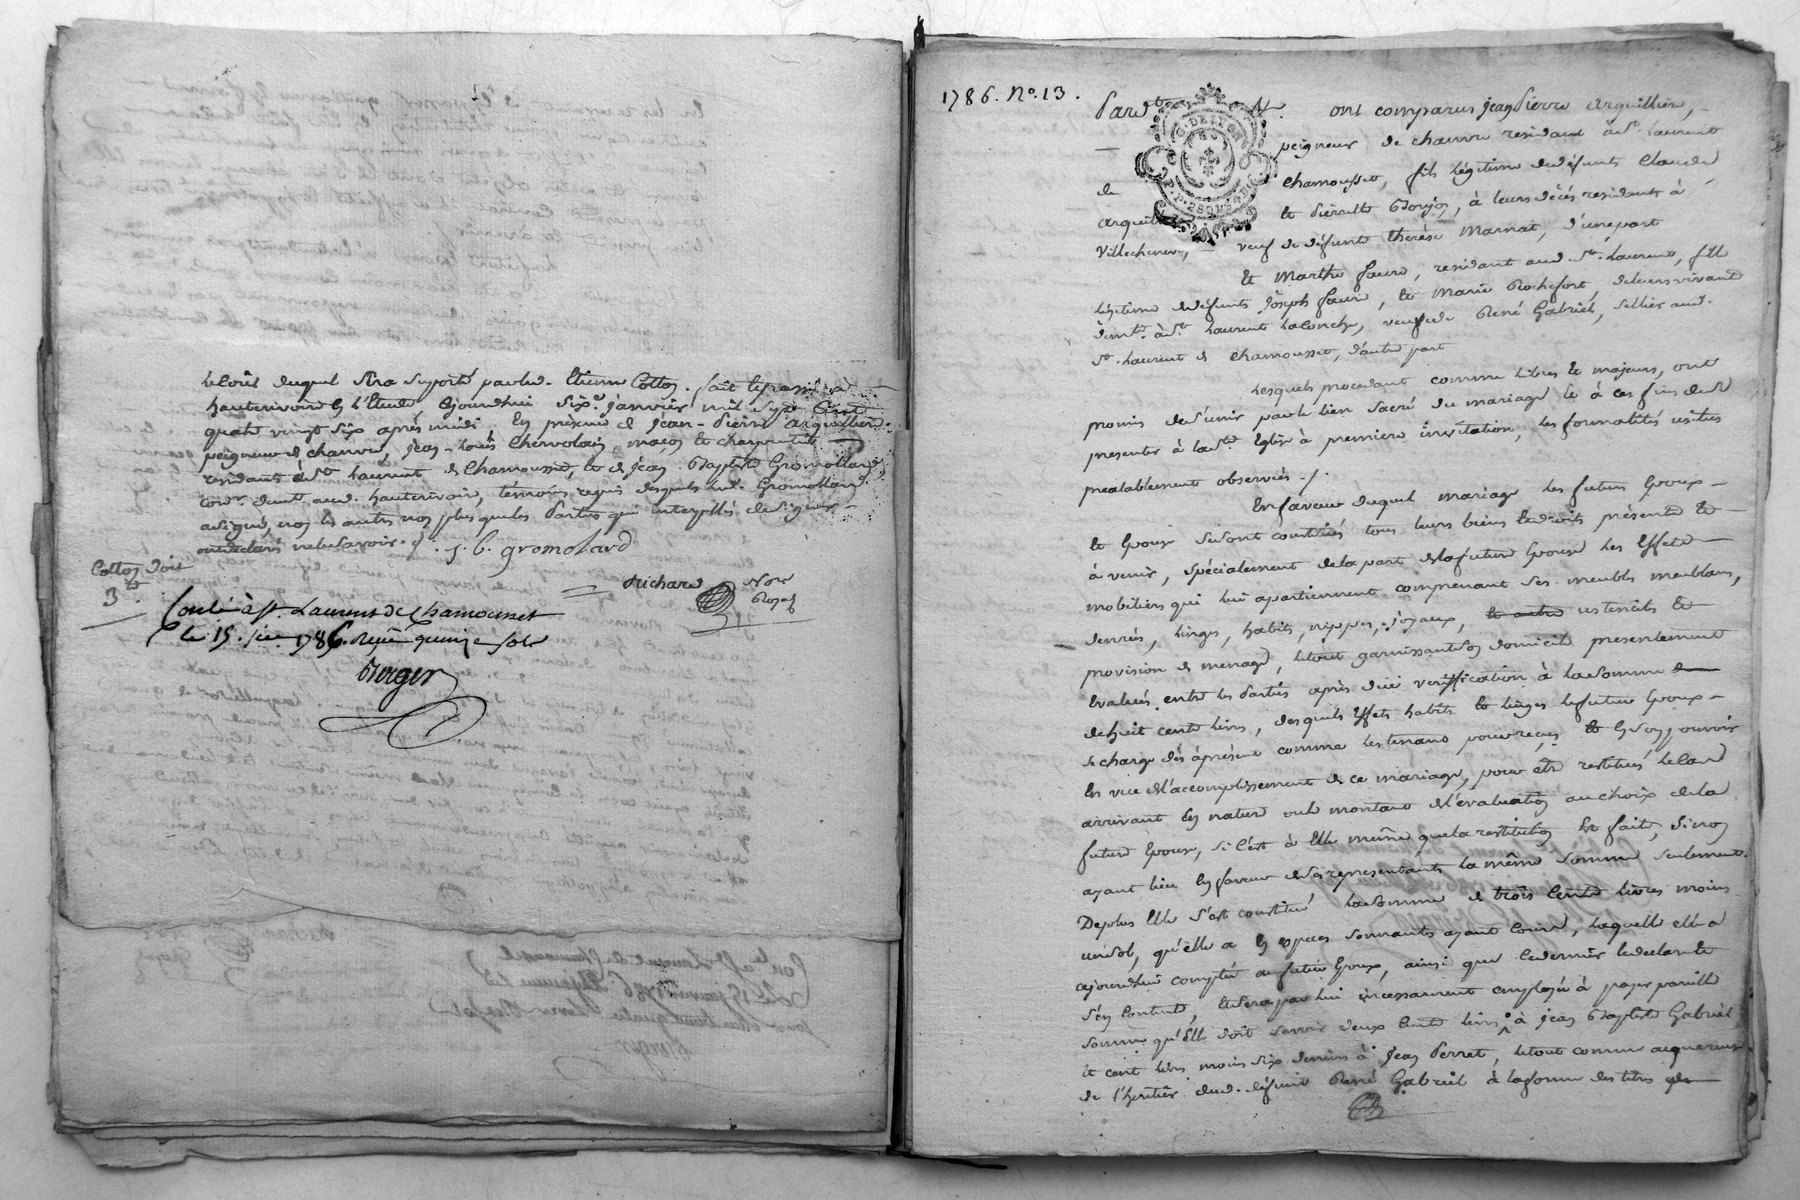 le coût duquel sera suporté par led. Etienne Cotton. fait et passé à
hauterivoire en l'Etude, ajourdhui six.e janvier mil sept Cent
quatre vingt six après midi, En présence de jean-pierre arquillière
peigneur de chanvre, jean-louis Chervolain, maçon et charpentier
residants à St laurent de Chamousset, et de jean Baptiste Gromollard
demt aud. hauterivoire, témoins requis desquels led. Gromollard
a signé, non les autres non plus que les Parties qui interpellés de signer
ont declaré ne le savoir. j. b. gromolard
Cotton doit
3tt
Richard Nore Royal
Conlé à St. Laurent de Chamousset
le 15. jer 1786. Reçu quinze sols
Berger
1786. No. 13.
Pard.t ont comparus jean pierre arquillière,
peigneur de chanvre residant à St. Laurent
de chamousset, fils légitime de défunts Claude
arquillière et Pierrette Bonjon, à leurs décès residants à
Villecheneve, veuf de défunte thérèse Marnat, d'une part
et Marthe faure, residant aud. St. Laurent, fille
légitime de défunts joseph faure, et Marie Rochefort, de leurs vivant
demts. à St. Laurent, veuve de René Gabriel, sellier aud.
St. Laurent de Chamousset, d'autre part
Lesquels procedant comme libres et majeurs, ont
promis de s'unir par le lien sacré du mariage et à ces fins de se
presenter à la Ste Eglise à premiere invitation, les formalités usitées
prealablement observées /.
En faveur duquel mariage les futurs Epoux
et Epouse se sont constitués tous leurs biens et droits présents et
à venir, spécialement de la part de la future Epouse les Effets
mobiliers qui lui apartiennent comprenant ses meubles meublans,
denrées, linges, habits, nippes, joyaux, et autre ustencils et
provision de menage, le tout garnissant son domicile presentement
évalués entre les Parties après due vérification à la somme
de huit cents livres, desquels Effets habits et linges le futur Epoux
se charge dès à présent comme les tenant pour reçus et en son pouvoir
en vue de l'accomplissement de ce mariage, pour être restitués le cas
arrivant en nature ou le montant de l'évaluation au choix de la
future Epouse, si c'est à Elle même que la restitution Est faite, sinon
ayant lieu en faveur de ses representants la même somme seulement.
De plus Elle s'est constitué la somme de trois cents livres moins
un sol, qu'elle a en especes sonnantes ayant cours, laquelle elle a
ajourdhui compté au futur Epoux, ainsi que ce dernier le declare et
s'en contente, et sera par lui incessamment employée à payer pareille
somme qu'Elle doit savoir deux cents livres à jean Baptiste Gabriel
et cent livres moins six deniers à Jean Perret, le tout comme acquereur
de l'heritier dud. défunt René Gabriel à la forme des titres